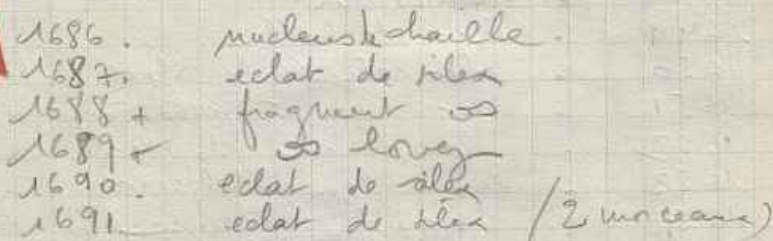 1686. nucleus de chaille.
1687. eclat de silex
1688 + fragment os
1689 + os
1690. eclat de silex
1691 eclat de silex (2 morceaux)